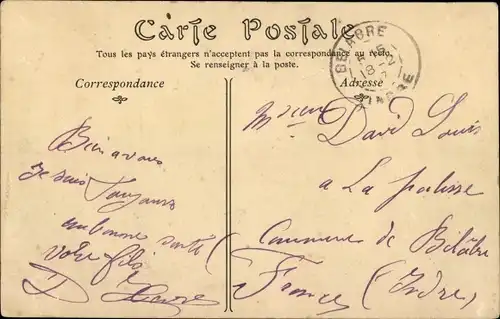 Carte Postale
Tous les pays étrangers n'acceptent pas la correspondance au recto.
Se renseigner à la poste.
BELABRE
INDRE
Correspondance
Adresse
David Louis
a La palisse
Commune de Bélâbre
France (Indre)
Bien a vous
Je suis Toujours
en bonne santé
votre fils
D